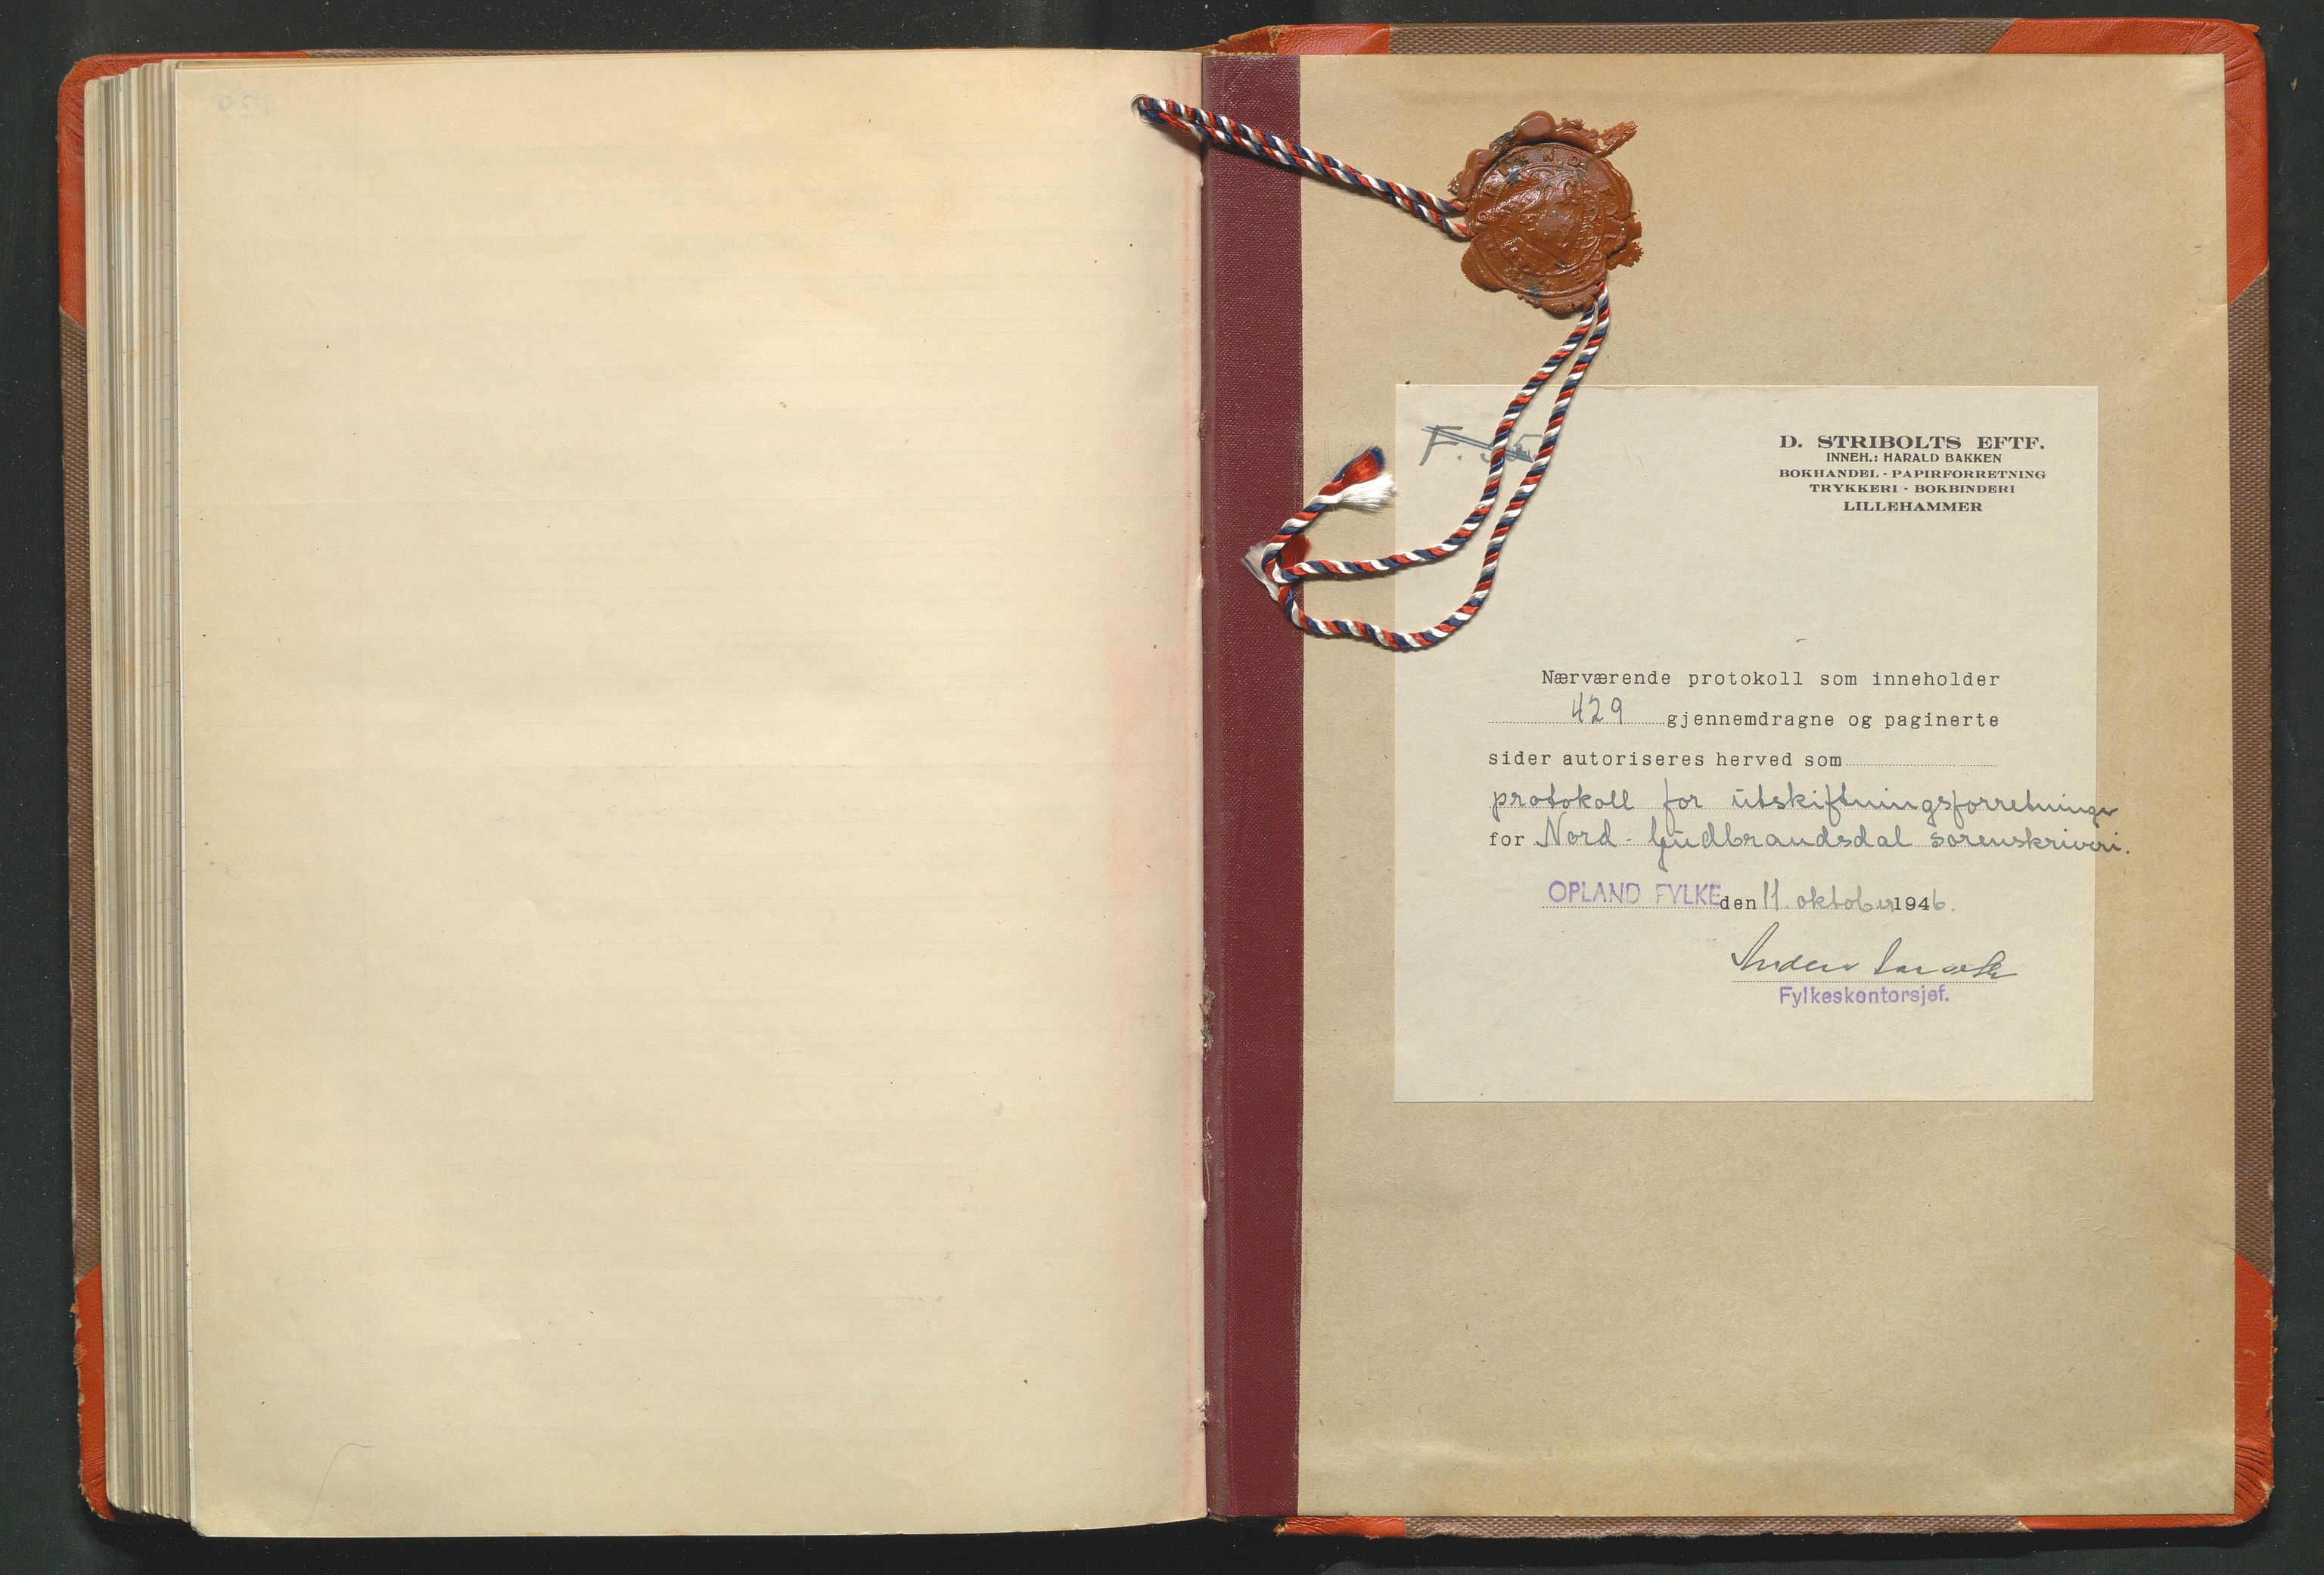 D. STRIBOLTS EFTF.
INNEH.: HARALD BAKKEN
BOKHANDEL - PAPIRFORRETNING
TRYKKERI - BOKBINDERI
LILLEHAMMER
Nærværende protokoll som inneholder
429 gjennemdragne og paginerte
sider autoriseres herved som
protokoll for utskiftningsforretninger
for Nord-Gudbrandsdal sorenskriveri.
OPLAND FYLKE den 11. oktober 1946.
Anders
Fylkeskontorsjef.